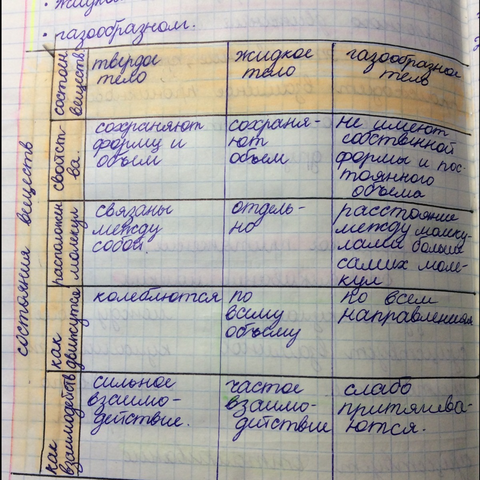 • жидком
• газообразном.
состояния веществ
состоян веществ
твердое
тело
жидкое
тело
газообразное
тело
свойст-
ва.
сохраняют
форму и
объем
сохраня-
ют
объем
не имеют
собственной
формы и пос-
тоянного
объема
расположен
молекул
связаны
между
собой.
отдель-
но
расстояние
между молеку-
лами больше
самих моле-
кул.
как
движутся
колеблются
по
всему
объему
по всем
направлениям
как
взаимодейств
сильное
взаимо-
действие.
частое
взаимо-
действие
слабо
притягива-
ются.